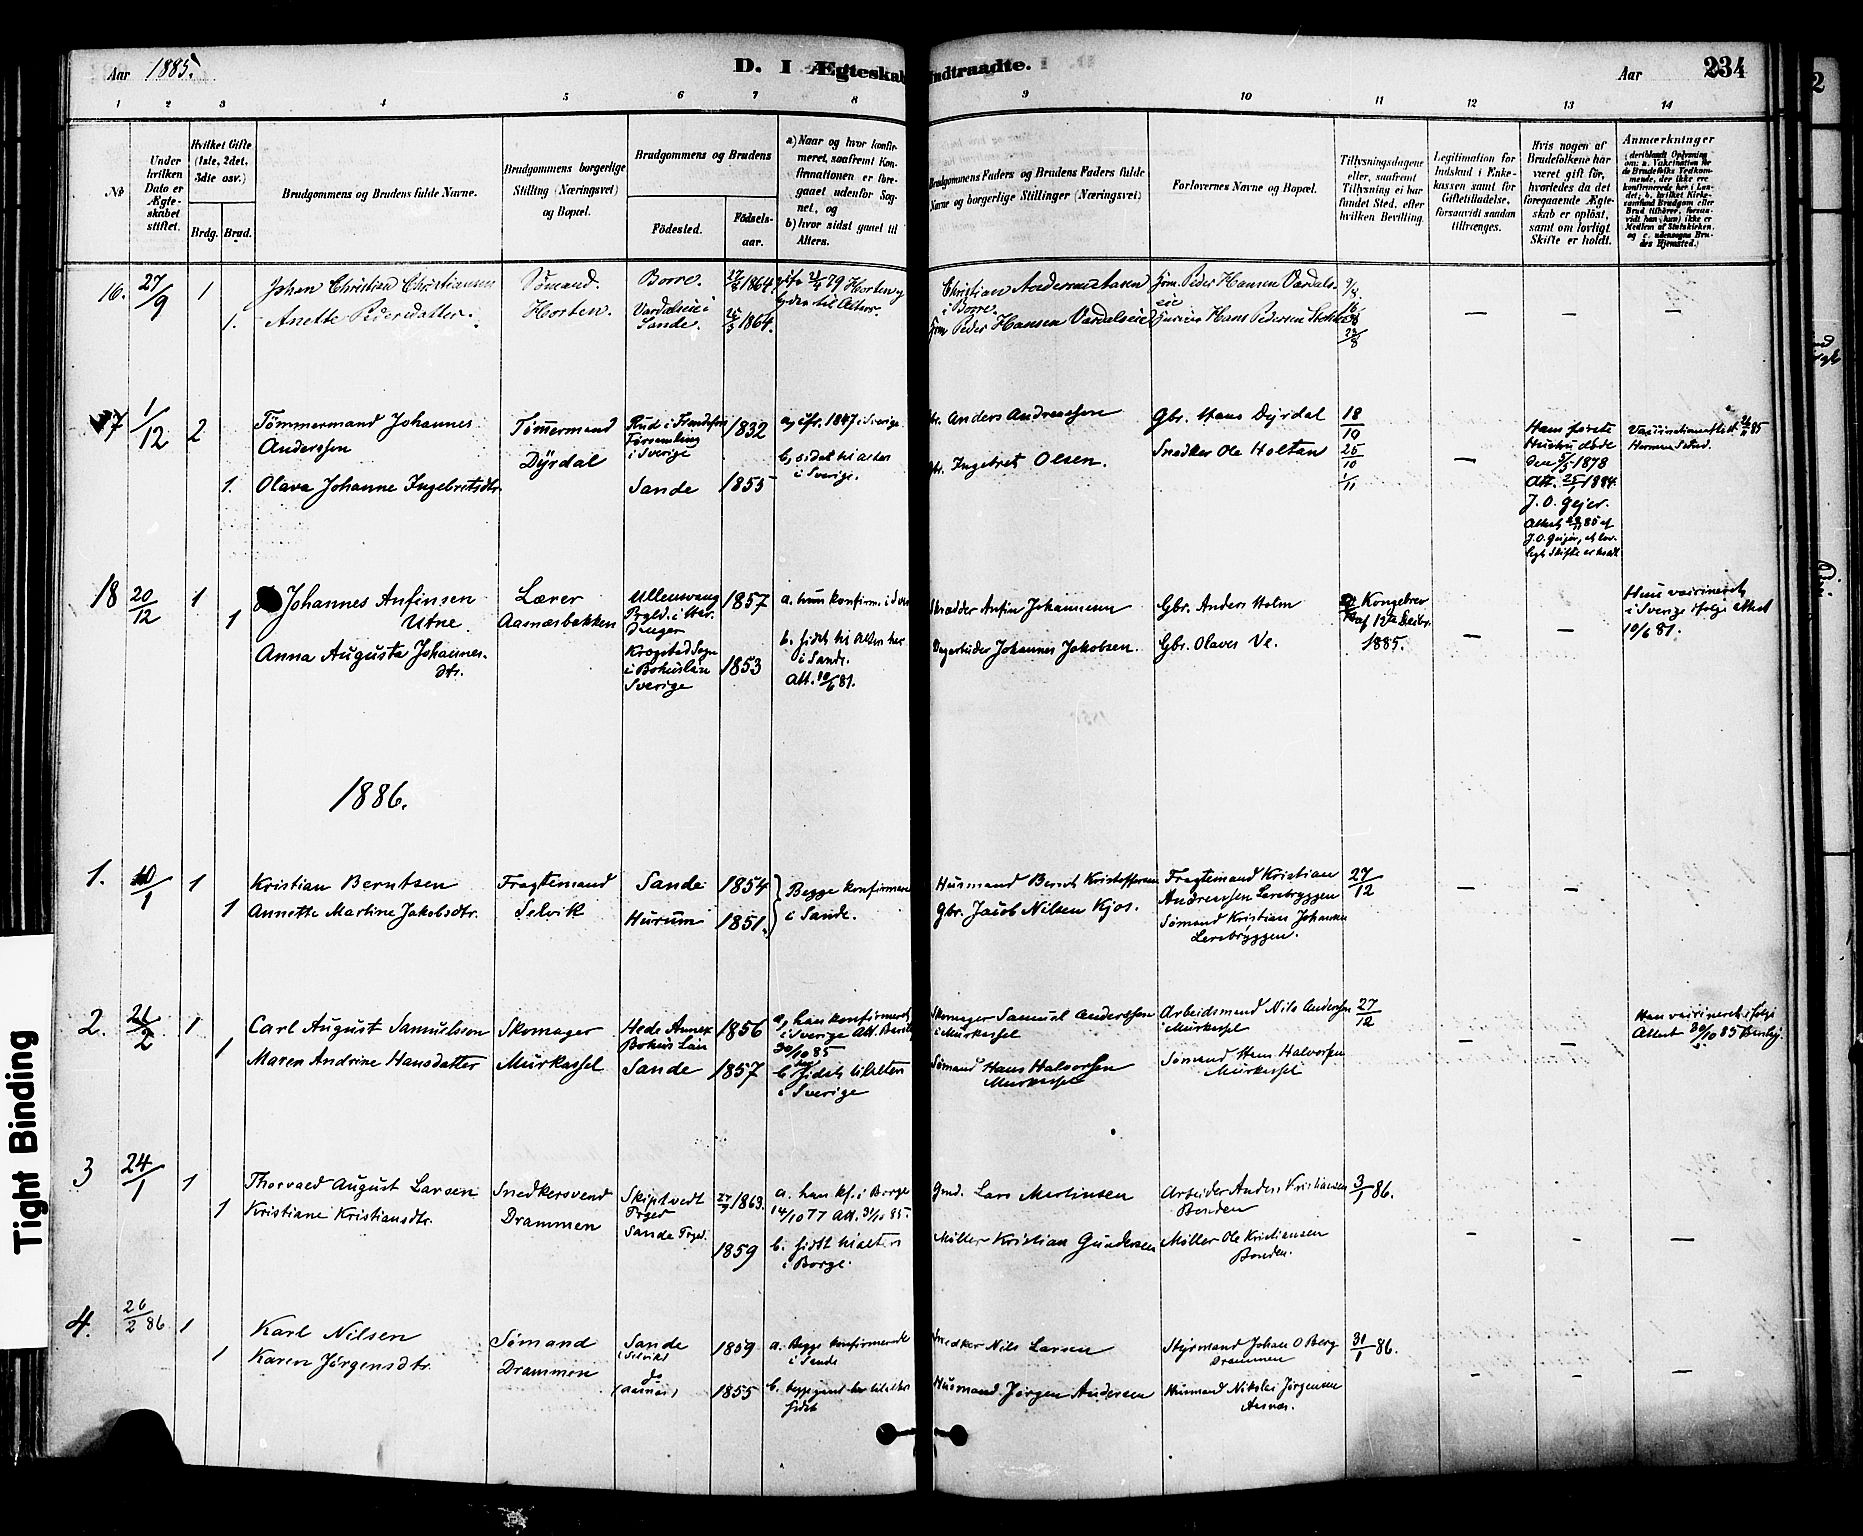 Aar 1885.
D. I Ægteskab Indtraadte.
Aar
234
1 2 3 4 5 6 7 8 9 10 11 12 13 14
No
Under hvilken Dato er Ægteskabet stiftet.
Hvilket Gifte (1ste, 2det, 3die osv.)
Brdg. Brud.
Brudgommens og Brudens fulde Navne.
Brudgommens borgerlige Stilling (Næringsvei) og Bopæl.
Brudgommens og Brudens
Fødested.
Fødselsaar.
a) Naar og hvor konfirmeret, saafremt Konfirmationen er foregaaet udenfor Sognet, og
b) hvor sidst gaaet til Alters.
Brudgommens Faders og Brudens Faders fulde Navne og borgerlige Stillinger (Næringsvei)
Forlovernes Navne og Bopæl.
Tillysningsdagene eller, saafremt Tillysning ei har fundet Sted, efter hvilken Bevilling.
Legitimation for Indskud i Enkekassen samt for Giftetilladelse, forsaavidt saadan tiltrænges.
Hvis nogen af Brudefolkene har været gift før, hvorledes da det foregaaende Ægteskab er opløst, samt om lovligt Skifte er holdt.
Anmærkninger
16. 27/9 1 1.
Johan Christian Christiansen
Anette Pedersdatter.
Sømand.
Horten.
Borre.
Vardalseie i Sande.
1864.
1864.
Horten
til Alters.
Christian
i Borre.
Peder Hansen Vardalseie
Peder Hansen Vardalseie
Hans Pedersen
17 1/12 2 1.
Tømmermand Johannes
Anderssen
Olava Johanne Ingebretsdtr.
Tømmermand
Dyrdal
i Sverige
Sande
1832
1855
1847 i Sverige
b, sidst til Alters
i Sverige.
Anders Andreassen
Ingebret Olsen.
Gbr. Hans Dyrdal
Snedker Ole Holtan
18/10
25/10
1/11
Hans første
Hustru døde
den 5/5 1878
Att. 1884.
J. O. Gejer.
18 20/12 1 1
Johannes Anfinsen
Utne.
Anna Augusta Johannes-
dtr.
Lærer
Aasnæsbakken
Ullensvang
Prgld. i Har-
danger
Krogstad Sogn
i Bohuslän
Sverige
1857
1853
a. hun konfirm. i
b. sidst til Alters her
i Sande.
Att. 10/6 81.
Skrædder Anfin Johannesen
Johannes Jakobsen.
Gbr. Anders Holm
Gbr. Olaves Ve.
Kongebrev
af 12te Decbr.
1885.
Hun vaccineret
i Sverige ifølge Attest
10/6 81.
1886.
1. 10/1 1 1
Kristian Berntsen
Annette Martine Jakobsdtr.
Fragtemand
Selvik
Sande
Hurum
1854
1851.
Begge konfirmere
i Sande.
Husmand Bernt Kristoffersen
Gbr. Jacob Nilsen Kjos.
Fragtemand Kristian
Andreassen Lerebryggen
Sømand Kristian Johansen
Lerebryggen.
27/12
2. 21/2 1 1
Carl August Samuelsson
Maren Andrine Hansdatter
Skomager
Murkassel
Hede Annex
Bohus Län
Sande
1856
1857
a, han konfirmeret
i Sverige Att.
30/10 85
b, sidst til Alters
i Sverige
Skomager Samuel Andersson
i Murkassel
Sømand Hans Halvorsen
Murkassel
Arbeidsmand Nils Andersen
i Murkassel
Sømand Hans Halvorsen
Murkassel
27/12
Han vaccineret ifølge
Attest 30/10 85
3 24/1 1 1
Thorvald August Larsen
Kristiane Kristiansdtr.
Snedkersvend
Drammen
Skiptvedt
Prgld
Sande Prgld.
1863.
1859
a. han kf. i Borge
14/10 77 Att. 31/10 85.
b. sidst til Alters
i Borge.
Gmd. Lars Martinsen
Møller Kristian Gundersen
Arbeider Anders Kristiansen
Bonden
Møller Ole Kristiansen
Bonden.
3/1 86.
4. 26/2 86 1 1
Karl Nilsen
Karen Jørgensdtr.
Sømand
Drammen
Sande
(Selvik)
do
(Aasnæs)
1859
1855
a. Begge konfirmerede
i Sande
b. begge her til Alters
sidst
Snedker Nils Larsen
Husmand Jørgen Andersen
Styrmand Johan O Berg
Drammen
Husmand Nikolai Jørgensen
Aasnæs.
31/1 86.
Tight Binding